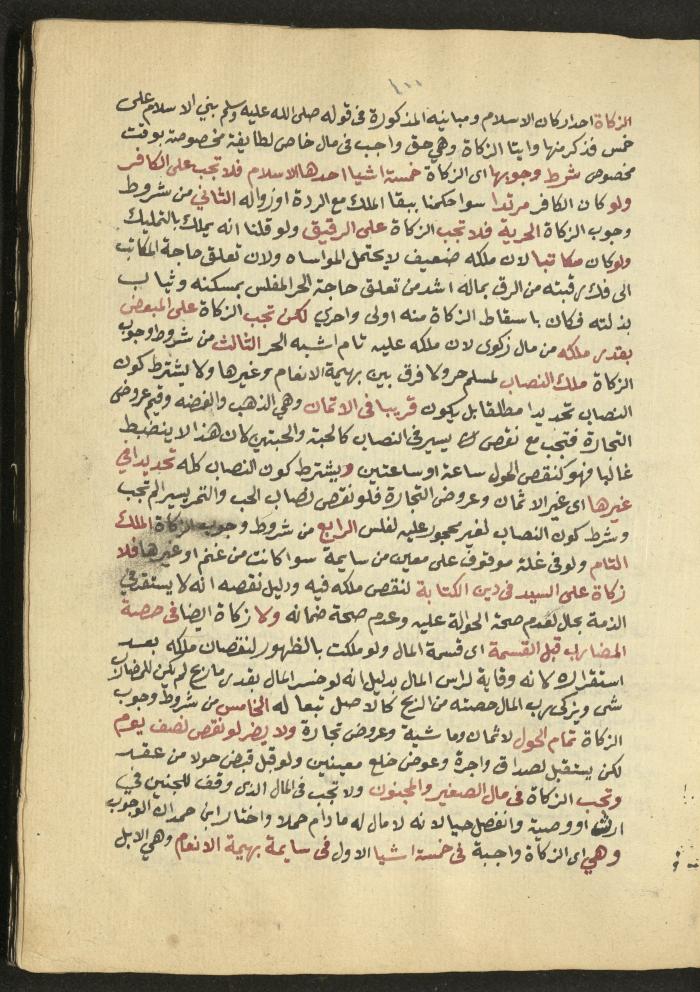 ١٠٠
الزكاة احد اركان الاسلام ومبانيه المذكورة فى قوله صلى الله عليه وسلم بني الاسلام على
خمس فذكر منها وايتا الزكاة وهي حق واجب فى مال خاص لطايفة مخصوصة بوقت
مخصوص شرط وجوبها اى الزكاة خمسة اشيا احدها الاسلام فلا تجب على الكافر
ولو كان الكافر مرتدا سوا حكمنا ببقا الملك مع الردة او زواله الثاني من شروط
وجوب الزكاة الحرية فلا تجب الزكاة على الرقيق ولو قلنا انه يملك بالتمليك
ولو كان مكاتبا لان ملكه ضعيف لا يحتمل المواساه ولان تعلق حاجة المكاتب
الى فك رقبته من الرق بماله اشد من تعلق حاجة الحر المفلس بمسكنه وثياب
بذلته فكان باسقاط الزكاة منه اولى واحري لكن تجب الزكاة على المبعض
بقدر ملكه من مال زكوى لان ملكه عليه تام اشبه الحر الثالث من شروط وجوب
الزكاة ملك النصاب لمسلم حر ولا فرق بين بهيمة الانعام وغيرها ولا يشترط كون
النصاب تحديدا مطلقا بل يكون قريبا فى الاثمان وهي الذهب والفضه وقيم عروض
التجارة فتجب مع نقص يسير فى النصاب كالحبة والحبتين لان هذا لا ينضبط
غالبا فهو كنقص الحول ساعة او ساعتين ويشترط كون النصاب كله تحديدا في
غيرها اى غير الاثمان وعروض التجارة فلو نقص نصاب الحب والتمر يسيرا لم تجب
وشرط كون النصاب لغير محجور عليه لفلس الرابع من شروط وجوب الزكاة الملك
التام ولو فى غلة موقوف على معين من سايمة سوا كانت من غنم او غيرها فلا
زكاة على السيد فى دين الكتابة لنقص ملكه فيه ودليل نقصه انه لا يستقر في
الذمة بحال لعدم صحة الحوالة عليه وعدم صحة ضمانه ولا زكاة ايضا فى حصة
المضارب قبل القسمة اى قسمة المال ولو ملكت بالظهور لنقصان ملكه بعد
استقراره لانه وقاية لراس المال بدليل انه لو خسر المال بقدر ما ربح لم يكن للمضارب
شى ويزكى رب المال حصته من الربح كالاصل تبعا له الخامس من شروط وجوب
الزكاة تمام الحول لاثمان وماشية وعروض تجارة ولا يضر لو نقص نصف يوم
لكن يستقبل لصداق واجرة وعوض خلع معينين ولو قبل قبض حولا من عقد
وتجب الزكاة فى مال الصغير والمجنون ولا تجب فى المال الذى وقف للجنين في
ارث او وصية وانفصل حيا لانه لا مال له ما دام حملا واختار ابن حمدان الوجوب
وهي اى الزكاة واجبة فى خمسة اشيا الاول فى سايمة بهيمة الانعام وهي الابل